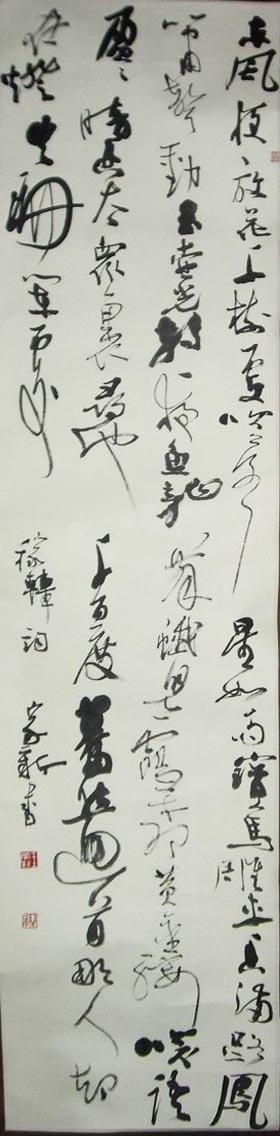 东風夜放花千树更吹落星如雨寶馬雕車香满路鳳
箫聲動玉壶光转一夜鱼龍舞蛾兒雪柳黄金縷笑語
盈盈暗香去眾裏尋他千百度蓦然回首那人却
在燈火珊闌處
稼軒词
家新書